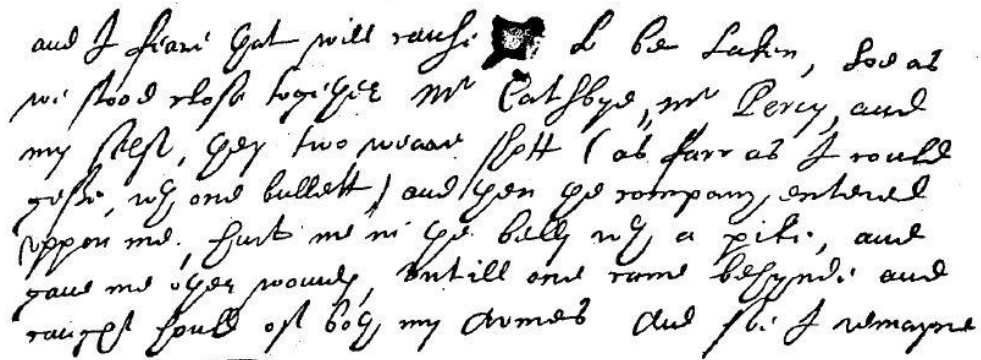 and I feare yat will cause to be taken, soe as
we stood close togeyer Mr Catsbye, mr Percy, and
my self, yey two weare shott (as farr as I could
gesse, wth one bullett) and yen ye company entered
uppon me, hurt me in ye belly wth a pike, and
gave me oyer wounds, untill one came behynde and
caught hould of both my armes And so I remayne